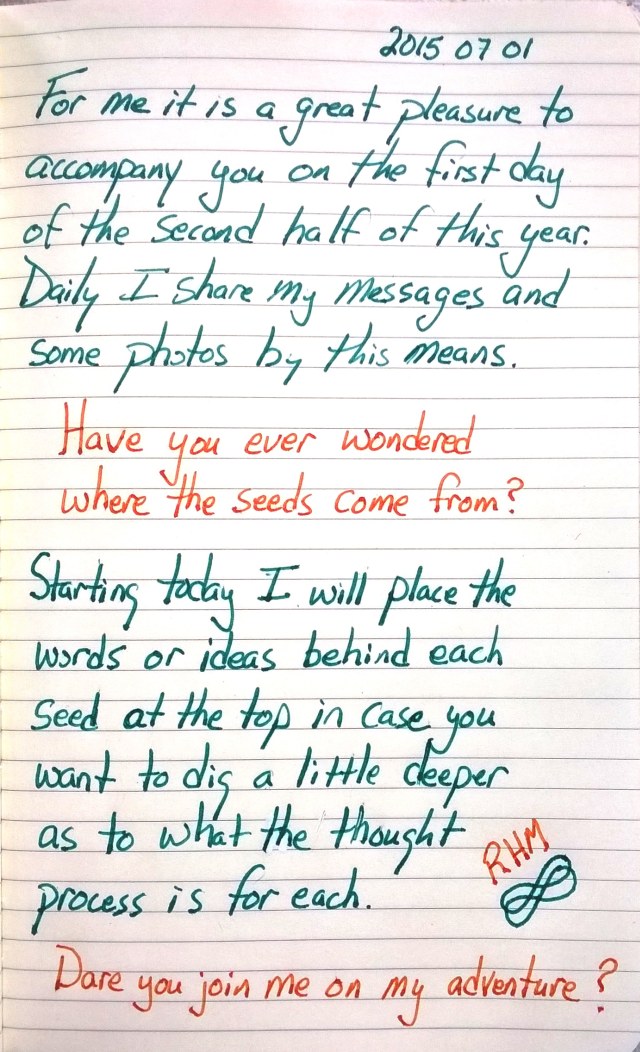 2015 07 01
For me it is a great pleasure to
accompany you on the first day
of the second half of this year.
Daily I share my messages and
some photos by this means.
Have you ever wondered
where the seeds come from?
Starting today I will place the
words or ideas behind each
seed at the top in case you
want to dig a little deeper
as to what the thought
process is for each.
RHM
Dare you join me on my adventure?